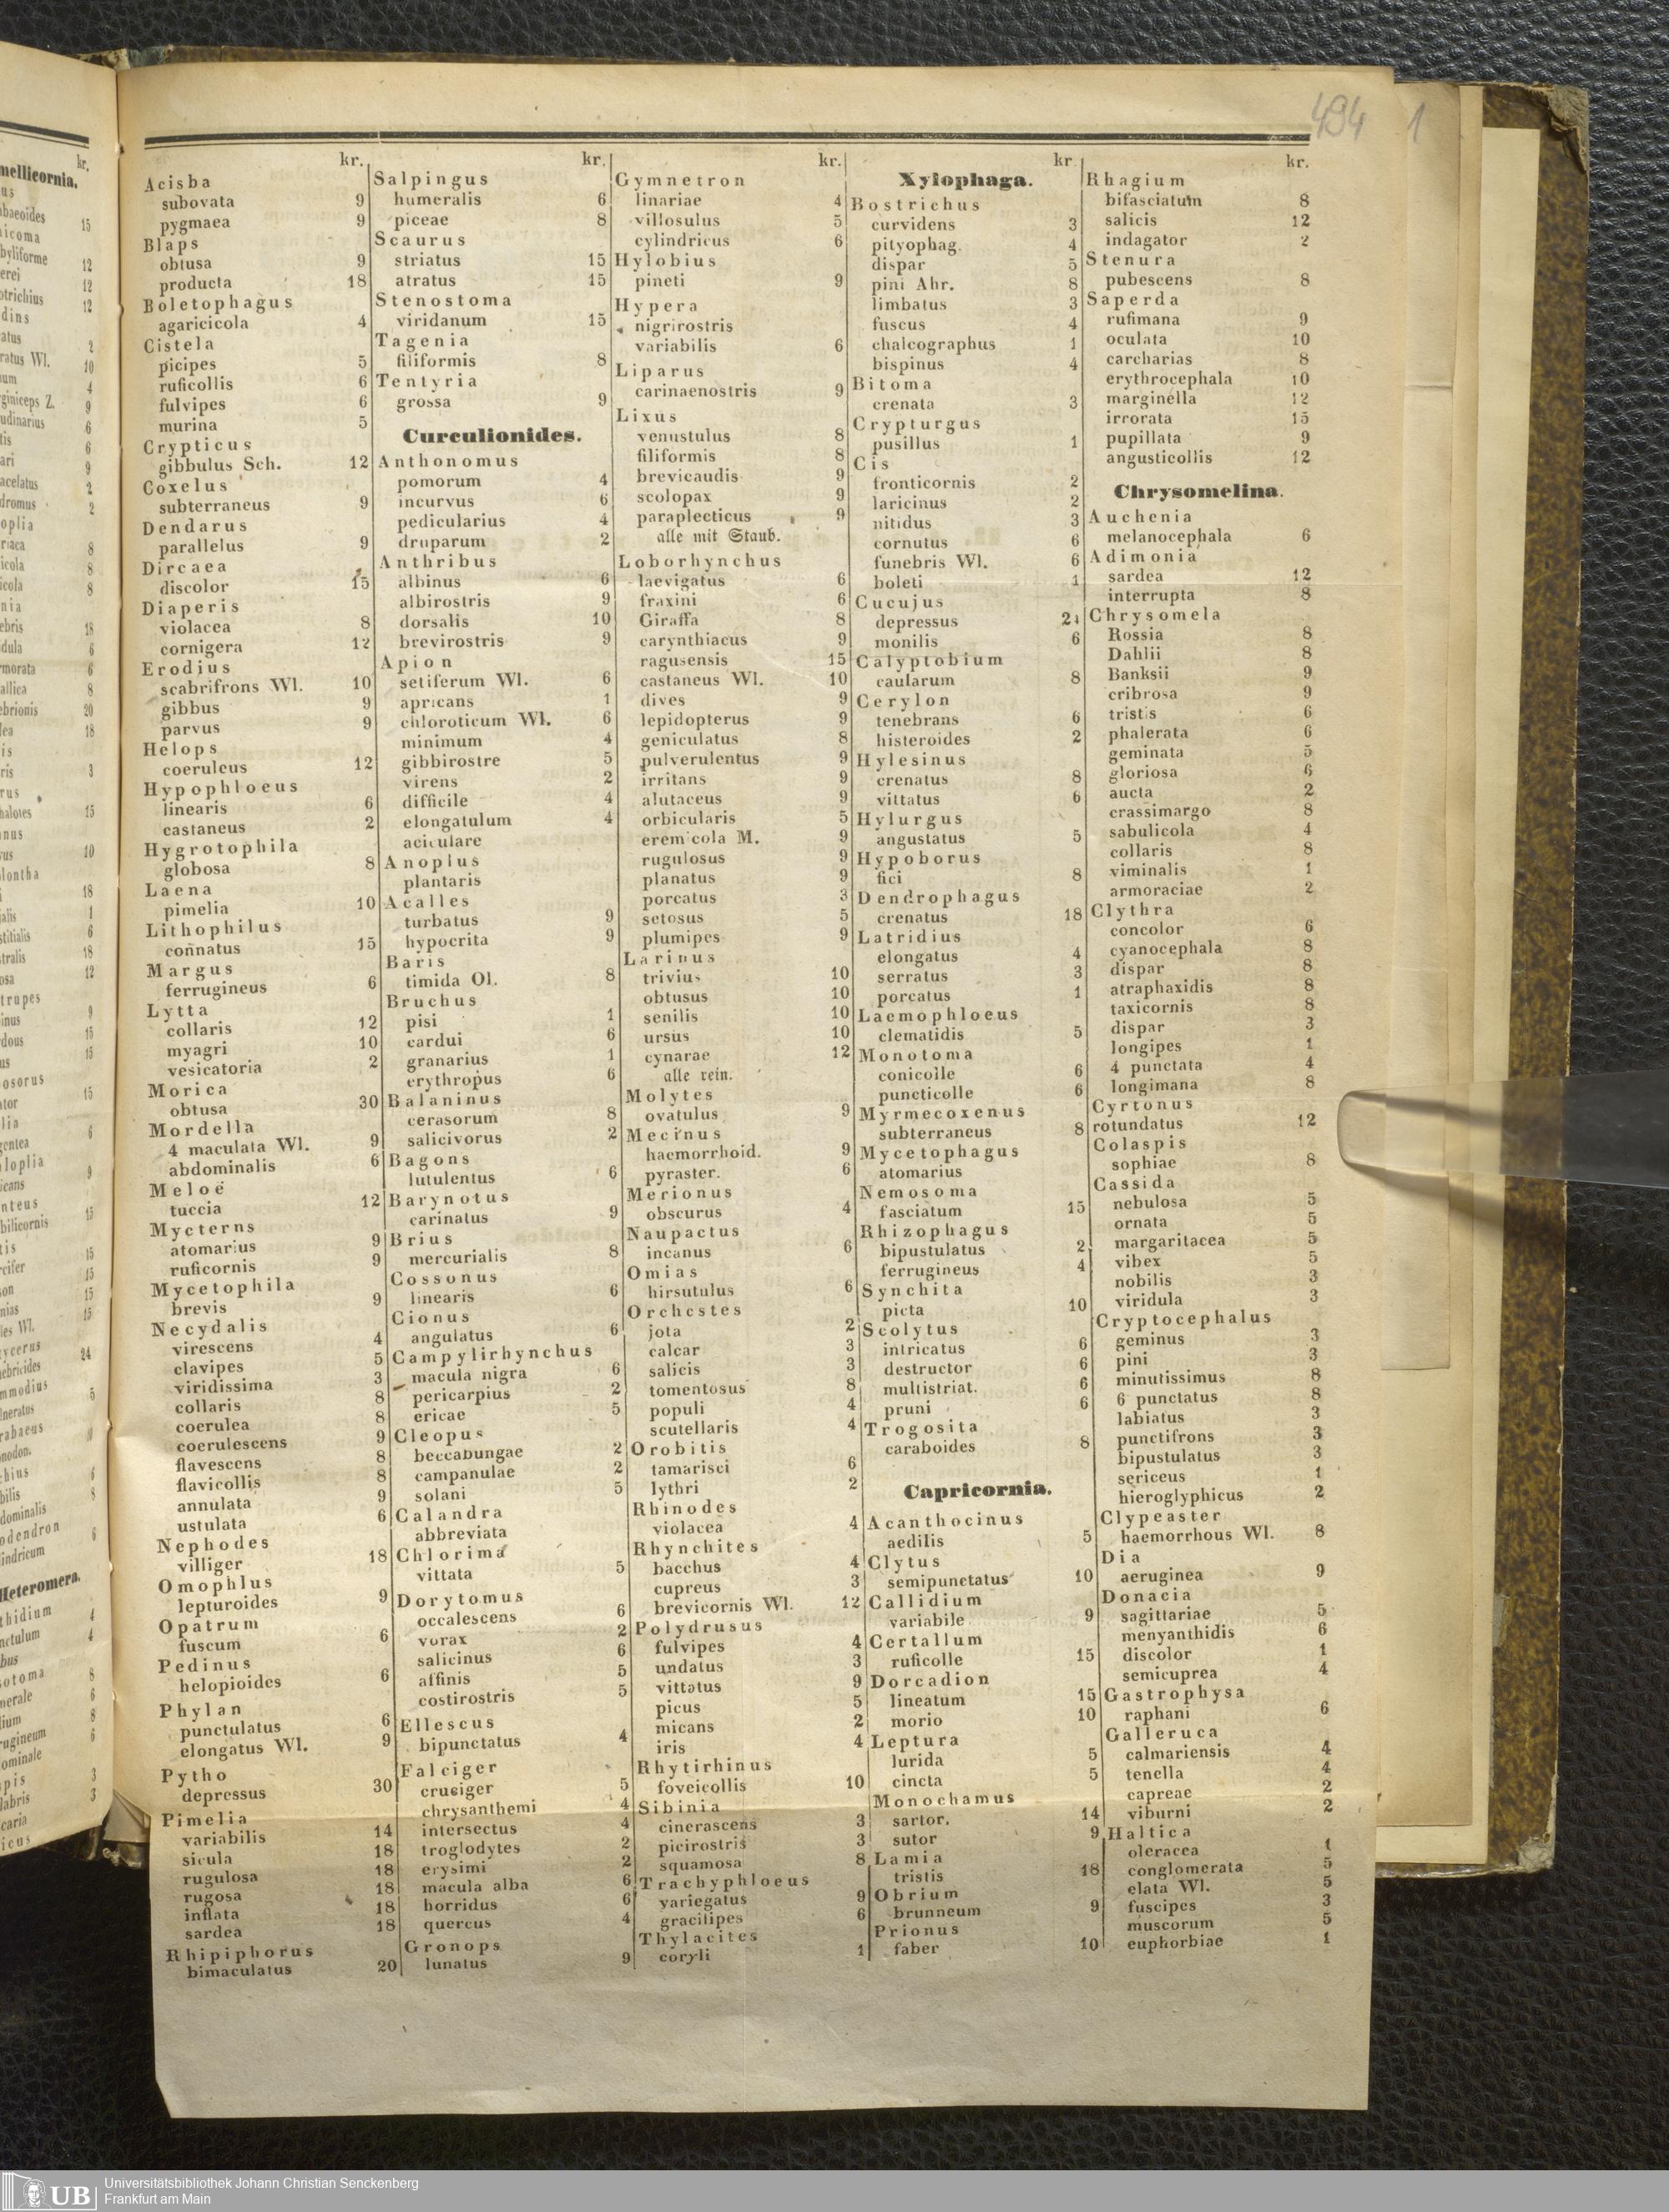 494 1
mellicornia.
kr.
Acisba
subovata 9
pygmaea 9
Blaps
obtusa 9
producta 18
Boletophagus
agaricicola 4
Cistela
picipes 5
ruficollis 6
fulvipes 6
murina 5
Crypticus
gibbulus Sch. 12
Coxelus
subterraneus 9
Dendarus
parallelus 9
Dircaea
discolor 15
Diaperis
violacea 8
cornigera 12
Erodius
scabrifrons Wl. 10
gibbus 9
parvus 9
Helops
coeruleus 12
Hypophloeus
linearis 6
castaneus 2
Hygrotophila
globosa 8
Laena
pimelia 10
Lithophilus
connatus 15
Margus
ferrugineus 6
Lytta
collaris 12
myagri 10
vesicatoria 2
Morica
obtusa 30
Mordella
4 maculata Wl. 9
abdominalis 6
Meloë
tuccia 12
Mycterns
atomarius 9
ruficornis 9
Mycetophila
brevis 9
Necydalis
virescens 4
clavipes 5
viridissima 3
collaris 8
coerulea 8
coerulescens 9
flavescens 8
flavicollis 8
annulata 9
ustulata 6
Nephodes
villiger 18
Omophlus
lepturoides 9
Opatrum
fuscum 6
Pedinus
helopioides 6
Phylan
punctulatus 6
elongatus Wl. 9
Pytho
depressus 30
Pimelia
variabilis 14
sicula 18
rugulosa 18
rugosa 18
inflata 18
sardea 18
Rhipiphorus
bimaculatus 20
kr.
Salpingus
humeralis 6
piceae 8
Scaurus
striatus 15
atratus 15
Stenostoma
viridanum 15
Tagenia
filiformis 8
Tentyria
grossa 9
Curculionides.
Anthonomus
pomorum 4
incurvus 6
pedicularius 4
druparum 2
Anthribus
albinus 6
albirostris 9
dorsalis 10
brevirostris 9
Apion
setiferum Wl. 6
apricans 1
chloroticum Wl. 6
minimum 4
gibbirostre 5
virens 2
difficile 4
elongatulum 4
aciculare
Anoplus
plantaris
Acalles
turbatus 9
hypocrita 9
Baris
timida Ol. 8
Bruchus
pisi 1
cardui 6
granarius 1
erythropus 6
Balaninus
cerasorum 8
salicivorus 2
Bagons
lutulentus 6
Barynotus
carinatus 9
Brius
mercurialis 8
Cossonus
linearis 6
Cionus
angulatus 6
Campylirhynchus
macula nigra 6
pericarpius 2
ericae 5
Cleopus
beccabungae 2
campanulae 2
solani 5
Calandra
abbreviata
Chlorima
vittata 5
Dorytomus
occalescens 6
vorax 2
salicinus 6
affinis 5
costirostris 5
Ellescus
bipunctatus 4
Falciger
cruciger 5
chrysanthemi 4
intersectus 4
troglodytes 2
erysimi 2
macula alba 6
horridus 6
quercus 4
Gronops
lunatus 9
kr.
Gymnetron
linariae 4
villosulus 5
cylindricus 6
Hylobius
pineti 9
Hypera
nigrirostris
variabilis 6
Liparus
carinaenostris 9
Lixus
venustulus 8
filiformis 8
brevicaudis 9
scolopax 9
paraplecticus 9
alle mit Staub.
Loborhynchus
laevigatus 6
fraxini 6
Giraffa 8
carynthiacus 9
ragusensis 15
castaneus Wl. 10
dives 9
lepidopterus 9
geniculatus 8
pulverulentus 9
irritans 9
alutaceus 9
orbicularis 5
eremicola M. 9
rugulosus 9
planatus 9
porcatus 3
setosus 5
plumipes 9
Larinus
trivius 10
obtusus 10
senilis 10
ursus 10
cynarae 12
alle rein.
Molytes
ovatulus 9
Mecinus
haemorrhoid. 9
pyraster. 6
Merionus
obscurus 4
Naupactus
incanus 6
Omias
hirsutulus 6
Orchestes
jota 2
calcar 3
salicis 3
tomentosus 8
populi 4
scutellaris 4
Orobitis
tamarisci 6
lythri 2
Rhinodes
violacea 4
Rhynchites
bacchus 4
cupreus 3
brevicornis Wl. 12
Polydrusus
fulvipes 4
undatus 3
vittatus 9
picus 5
micans 2
iris 4
Rhytirhinus
foveicollis 10
Sibinia
cinerascens 3
picirostris 3
squamosa 8
Trachyphloeus
variegatus 9
gracilipes 6
Thylacites
coryli 1
kr.
Xylophaga.
Bostrichus
curvidens 3
pityophag. 4
dispar 5
pini Ahr. 8
limbatus 3
fuscus 4
chalcographus 1
bispinus 4
Bitoma
crenata 3
Crypturgus
pusillus 1
Cis
fronticornis 2
laricinus 2
nitidus 3
cornutus 6
funebris Wl. 6
boleti 1
Cucujus
depressus
monilis 6
Calyptobium
caularum 8
Cerylon
tenebrans 6
histeroides 2
Hylesinus
crenatus 8
vittatus 6
Hylurgus
angustatus 5
Hypoborus
fici 8
Dendrophagus
crenatus 18
Latridius
elongatus 4
serratus 3
porcatus 1
Laemophloeus
clematidis 5
Monotoma
conicolle 6
puncticolle 6
Myrmecoxenus
subterraneus 8
Mycetophagus
atomarius
Nemosoma
fasciatum 15
Rhizophagus
bipustulatus 2
ferrugineus 4
Synchita
picta 10
Scolytus
intricatus 6
destructor 6
multistriat. 6
pruni 6
Trogosita
caraboides 8
Capricornia.
Acanthocinus
aedilis 5
Clytus
semipunctatus 10
Callidium
variabile 9
Certallum
ruficolle 15
Dorcadion
lineatum 15
morio 10
Leptura
lurida 5
cincta 5
Monochamus
sartor. 14
sutor 9
Lamia
tristis 18
Obrium
brunneum 9
Prionus
faber 10
kr.
Rhagium
bifasciatum 8
salicis 12
indagator 2
Stenura
pubescens 8
Saperda
rufimana 9
oculata 10
carcharias 8
erythrocephala 10
marginella 12
irrorata 15
pupillata 9
angusticollis 12
Chrysomelina.
Auchenia
melanocephala 6
Adimonia
sardea 12
interrupta 8
Chrysomela
Rossia 8
Dahlii 8
Banksii 9
cribrosa 9
tristis 6
phalerata 6
geminata 5
gloriosa 6
aucta 2
crassimargo 8
sabulicola 4
collaris 8
viminalis 1
armoraciae 2
Clythra
concolor 6
cyanocephala 8
dispar 8
atraphaxidis 8
taxicornis 8
dispar 3
longipes 1
4 punctata 4
longimana 8
Cyrtonus
rotundatus 12
Colaspis
sophiae 8
Cassida
nebulosa 5
ornata 5
margaritacea 5
vibex 5
nobilis 3
viridula 3
Cryptocephalus
geminus 3
pini 3
minutissimus 8
6 punctatus 8
labiatus 3
punctifrons 3
bipustulatus 3
sericeus 1
hieroglyphicus 2
Clypeaster
haemorrhous Wl. 8
Dia
aeruginea 9
Donacia
sagittariae 5
menyanthidis 6
discolor 1
semicuprea 4
Gastrophysa
raphani 6
Galleruca
calmariensis 4
tenella 4
capreae 2
viburni 2
Haltica
oleracea 1
conglomerata 5
elata Wl. 5
fuscipes 3
muscorum 5
euphorbiae 1
UB
Universitätsbibliothek Johann Christian Senckenberg
Frankfurt am Main